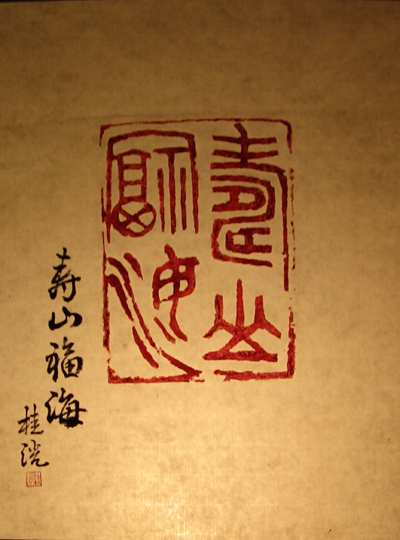 壽山
福海
寿山福海
桂